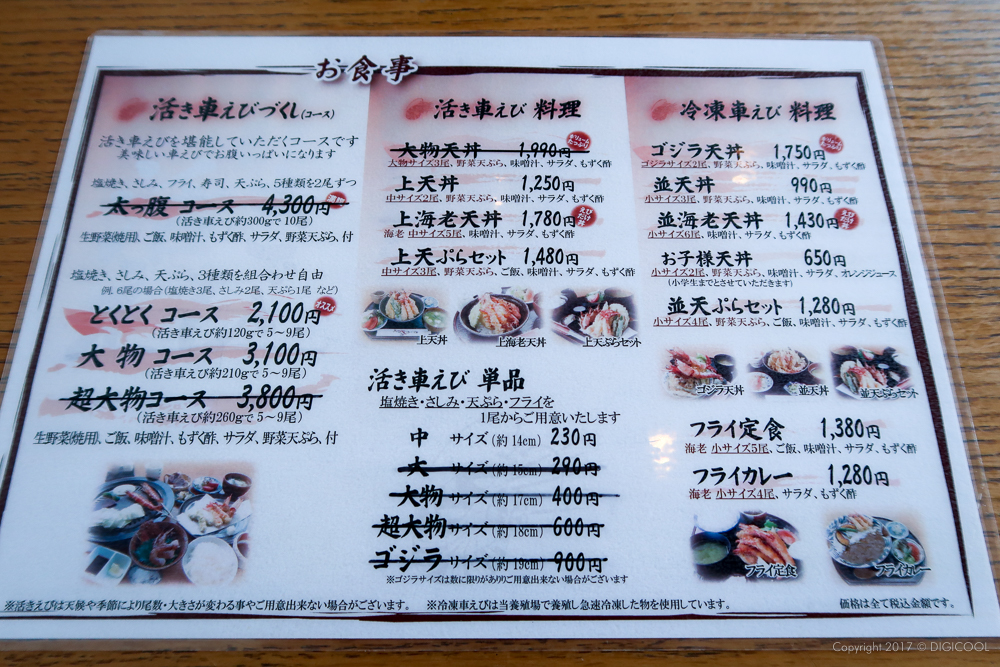 お食事
活き車えびづくし(コース)
活き車えびを堪能していただくコースです
美味しい車えびでお腹いっぱいになります
塩焼き、さしみ、フライ、寿司、天ぷら、5種類を2尾ずつ
太っ腹 コース 4,300円
(活き車えび約300gで 10尾)
生野菜(焼用)、ご飯、味噌汁、もずく酢、サラダ、野菜天ぷら、付
塩焼き、さしみ、天ぷら、3種類を組合わせ自由
例、6尾の場合(塩焼き3尾、さしみ2尾、天ぷら1尾 など)
とくとく コース 2,100円 オススメ
(活き車えび約120gで 5~9尾)
大物 コース 3,100円
(活き車えび約210gで 5~9尾)
超大物コース 3,800円
(活き車えび約260gで 5~9尾)
生野菜(焼用)、ご飯、味噌汁、もずく酢、サラダ、野菜天ぷら、付
活き車えび 料理
大物天丼 1,990円
大物サイズ3尾、野菜天ぷら、味噌汁、サラダ、もずく酢
上天丼 1,250円
中サイズ2尾、野菜天ぷら、味噌汁、サラダ、もずく酢
上海老天丼 1,780円 えびだけ丼
海老 中サイズ5尾、味噌汁、サラダ、もずく酢
上天ぷらセット 1,480円
中サイズ3尾、野菜天ぷら、ご飯、味噌汁、サラダ、もずく酢
上天丼
上海老天丼
上天ぷらセット
活き車えび 単品
塩焼き・さしみ・天ぷら・フライを
1尾からご用意いたします
中 サイズ(約14cm) 230円
大 サイズ(約15cm) 290円
大物 サイズ(約17cm) 400円
超大物 サイズ(約18cm) 600円
ゴジラ サイズ(約19cm) 900円
※ゴジラサイズは数に限りがありご用意出来ない場合がございます
冷凍車えび 料理
ゴジラ天丼 1,750円
ゴジラサイズ2尾、野菜天ぷら、味噌汁、サラダ、もずく酢
並天丼 990円
小サイズ3尾、野菜天ぷら、味噌汁、サラダ、もずく酢
並海老天丼 1,430円 えびだけ丼
小サイズ6尾、味噌汁、サラダ、もずく酢
お子様天丼 650円
小サイズ2尾、野菜天ぷら、味噌汁、サラダ、オレンジジュース
(小学生までとさせていただきます)
並天ぷらセット 1,280円
小サイズ4尾、野菜天ぷら、ご飯、味噌汁、サラダ、もずく酢
ゴジラ天丼
並天丼
並天ぷらセット
フライ定食 1,380円
海老 小サイズ5尾、ご飯、味噌汁、サラダ、もずく酢
フライカレー 1,280円
海老 小サイズ4尾、サラダ、もずく酢
フライ定食
フライカレー
※活きえびは天候や季節により尾数・大きさが変わる事やご用意出来ない場合がございます。 ※冷凍車えびは当養殖場で養殖し急速冷凍した物を使用しています。 価格は全て税込金額です。
Copyright 2017 © DIGICOOL